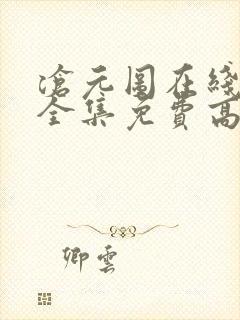 滄元圖在綫
全集免費高
卿雲